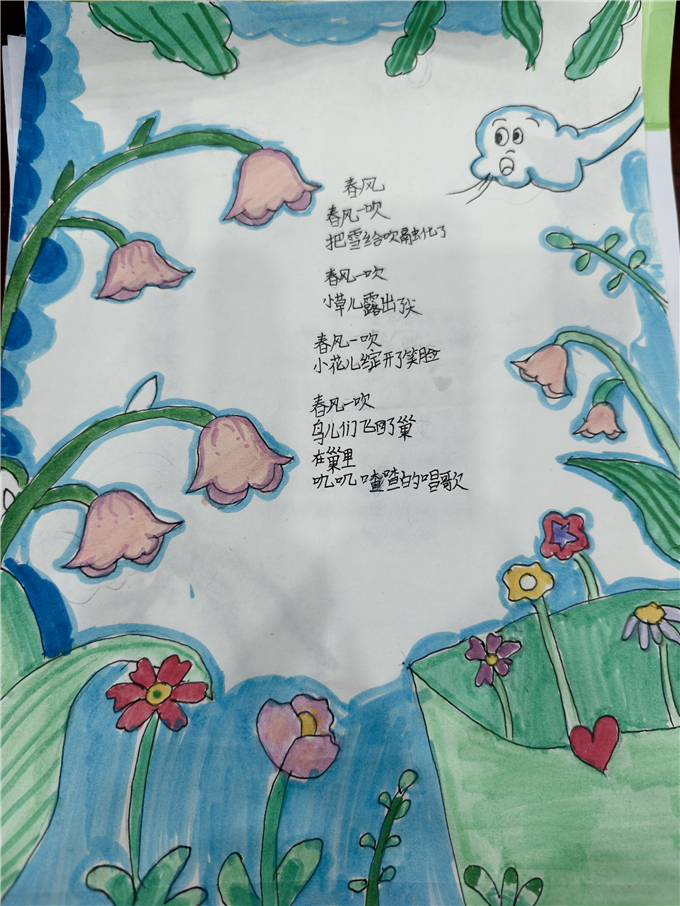 春风
春风一吹
把雪给吹融化了
春风一吹
小草儿露出了尖
春风一吹
小花儿绽开了笑脸
春风一吹
鸟儿们飞回了巢
在巢里
叽叽喳喳的唱歌